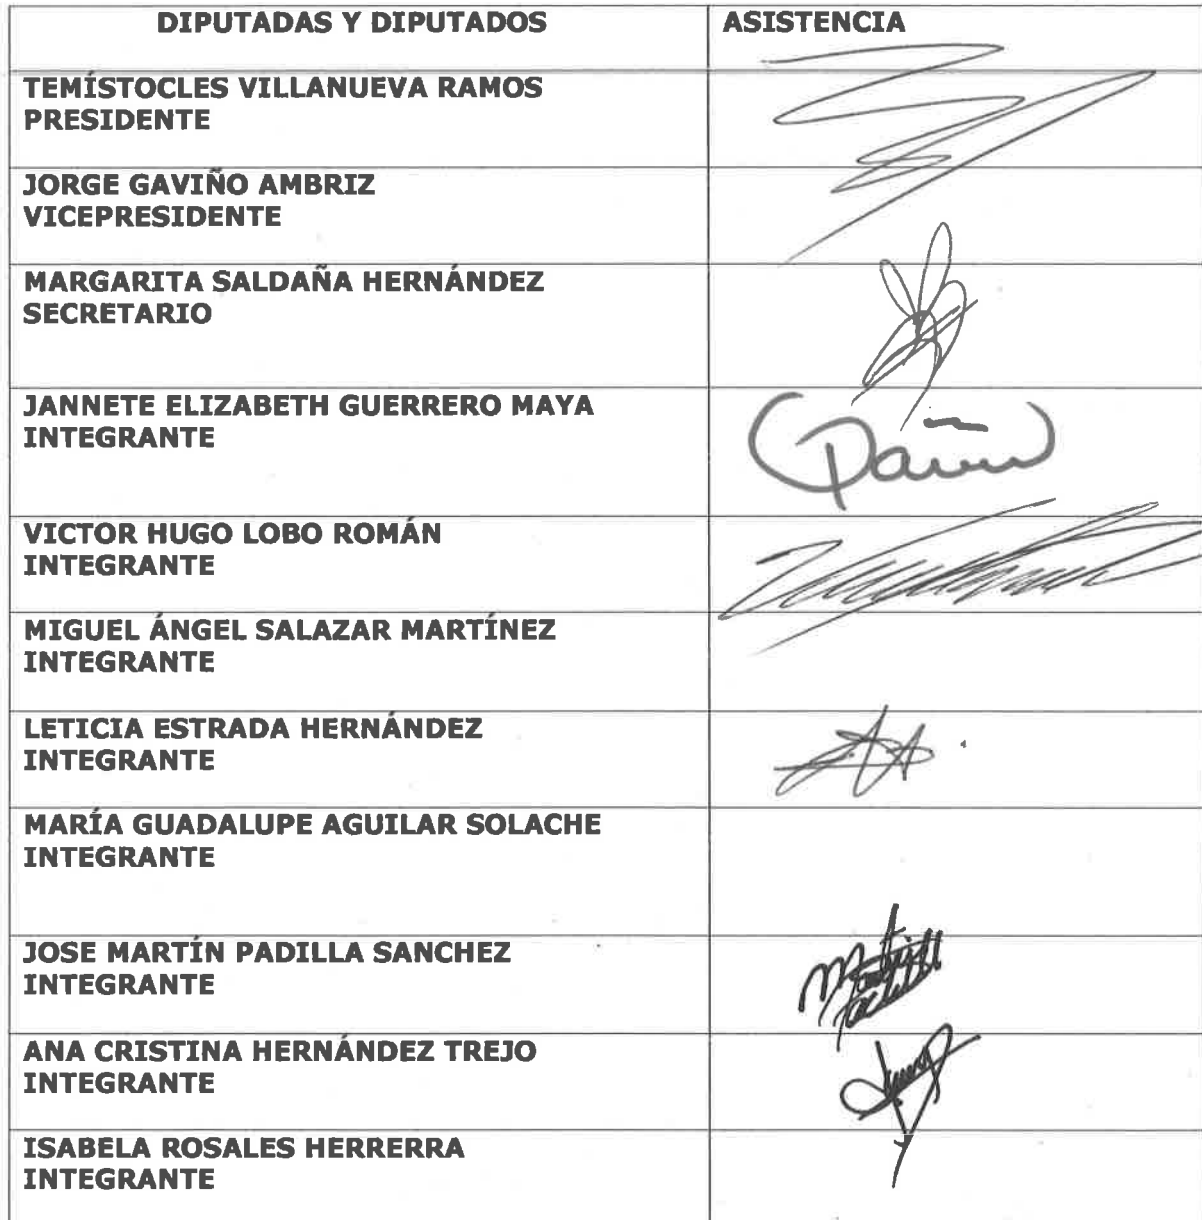 DIPUTADAS Y DIPUTADOS
ASISTENCIA
TEMÍSTOCLES VILLANUEVA RAMOS
PRESIDENTE
JORGE GAVIÑO AMBRIZ
VICEPRESIDENTE
MARGARITA SALDAÑA HERNÁNDEZ
SECRETARIO
JANNETE ELIZABETH GUERRERO MAYA
INTEGRANTE
VICTOR HUGO LOBO ROMÁN
INTEGRANTE
MIGUEL ÁNGEL SALAZAR MARTÍNEZ
INTEGRANTE
LETICIA ESTRADA HERNÁNDEZ
INTEGRANTE
MARÍA GUADALUPE AGUILAR SOLACHE
INTEGRANTE
JOSE MARTÍN PADILLA SANCHEZ
INTEGRANTE
ANA CRISTINA HERNÁNDEZ TREJO
INTEGRANTE
ISABELA ROSALES HERRERRA
INTEGRANTE